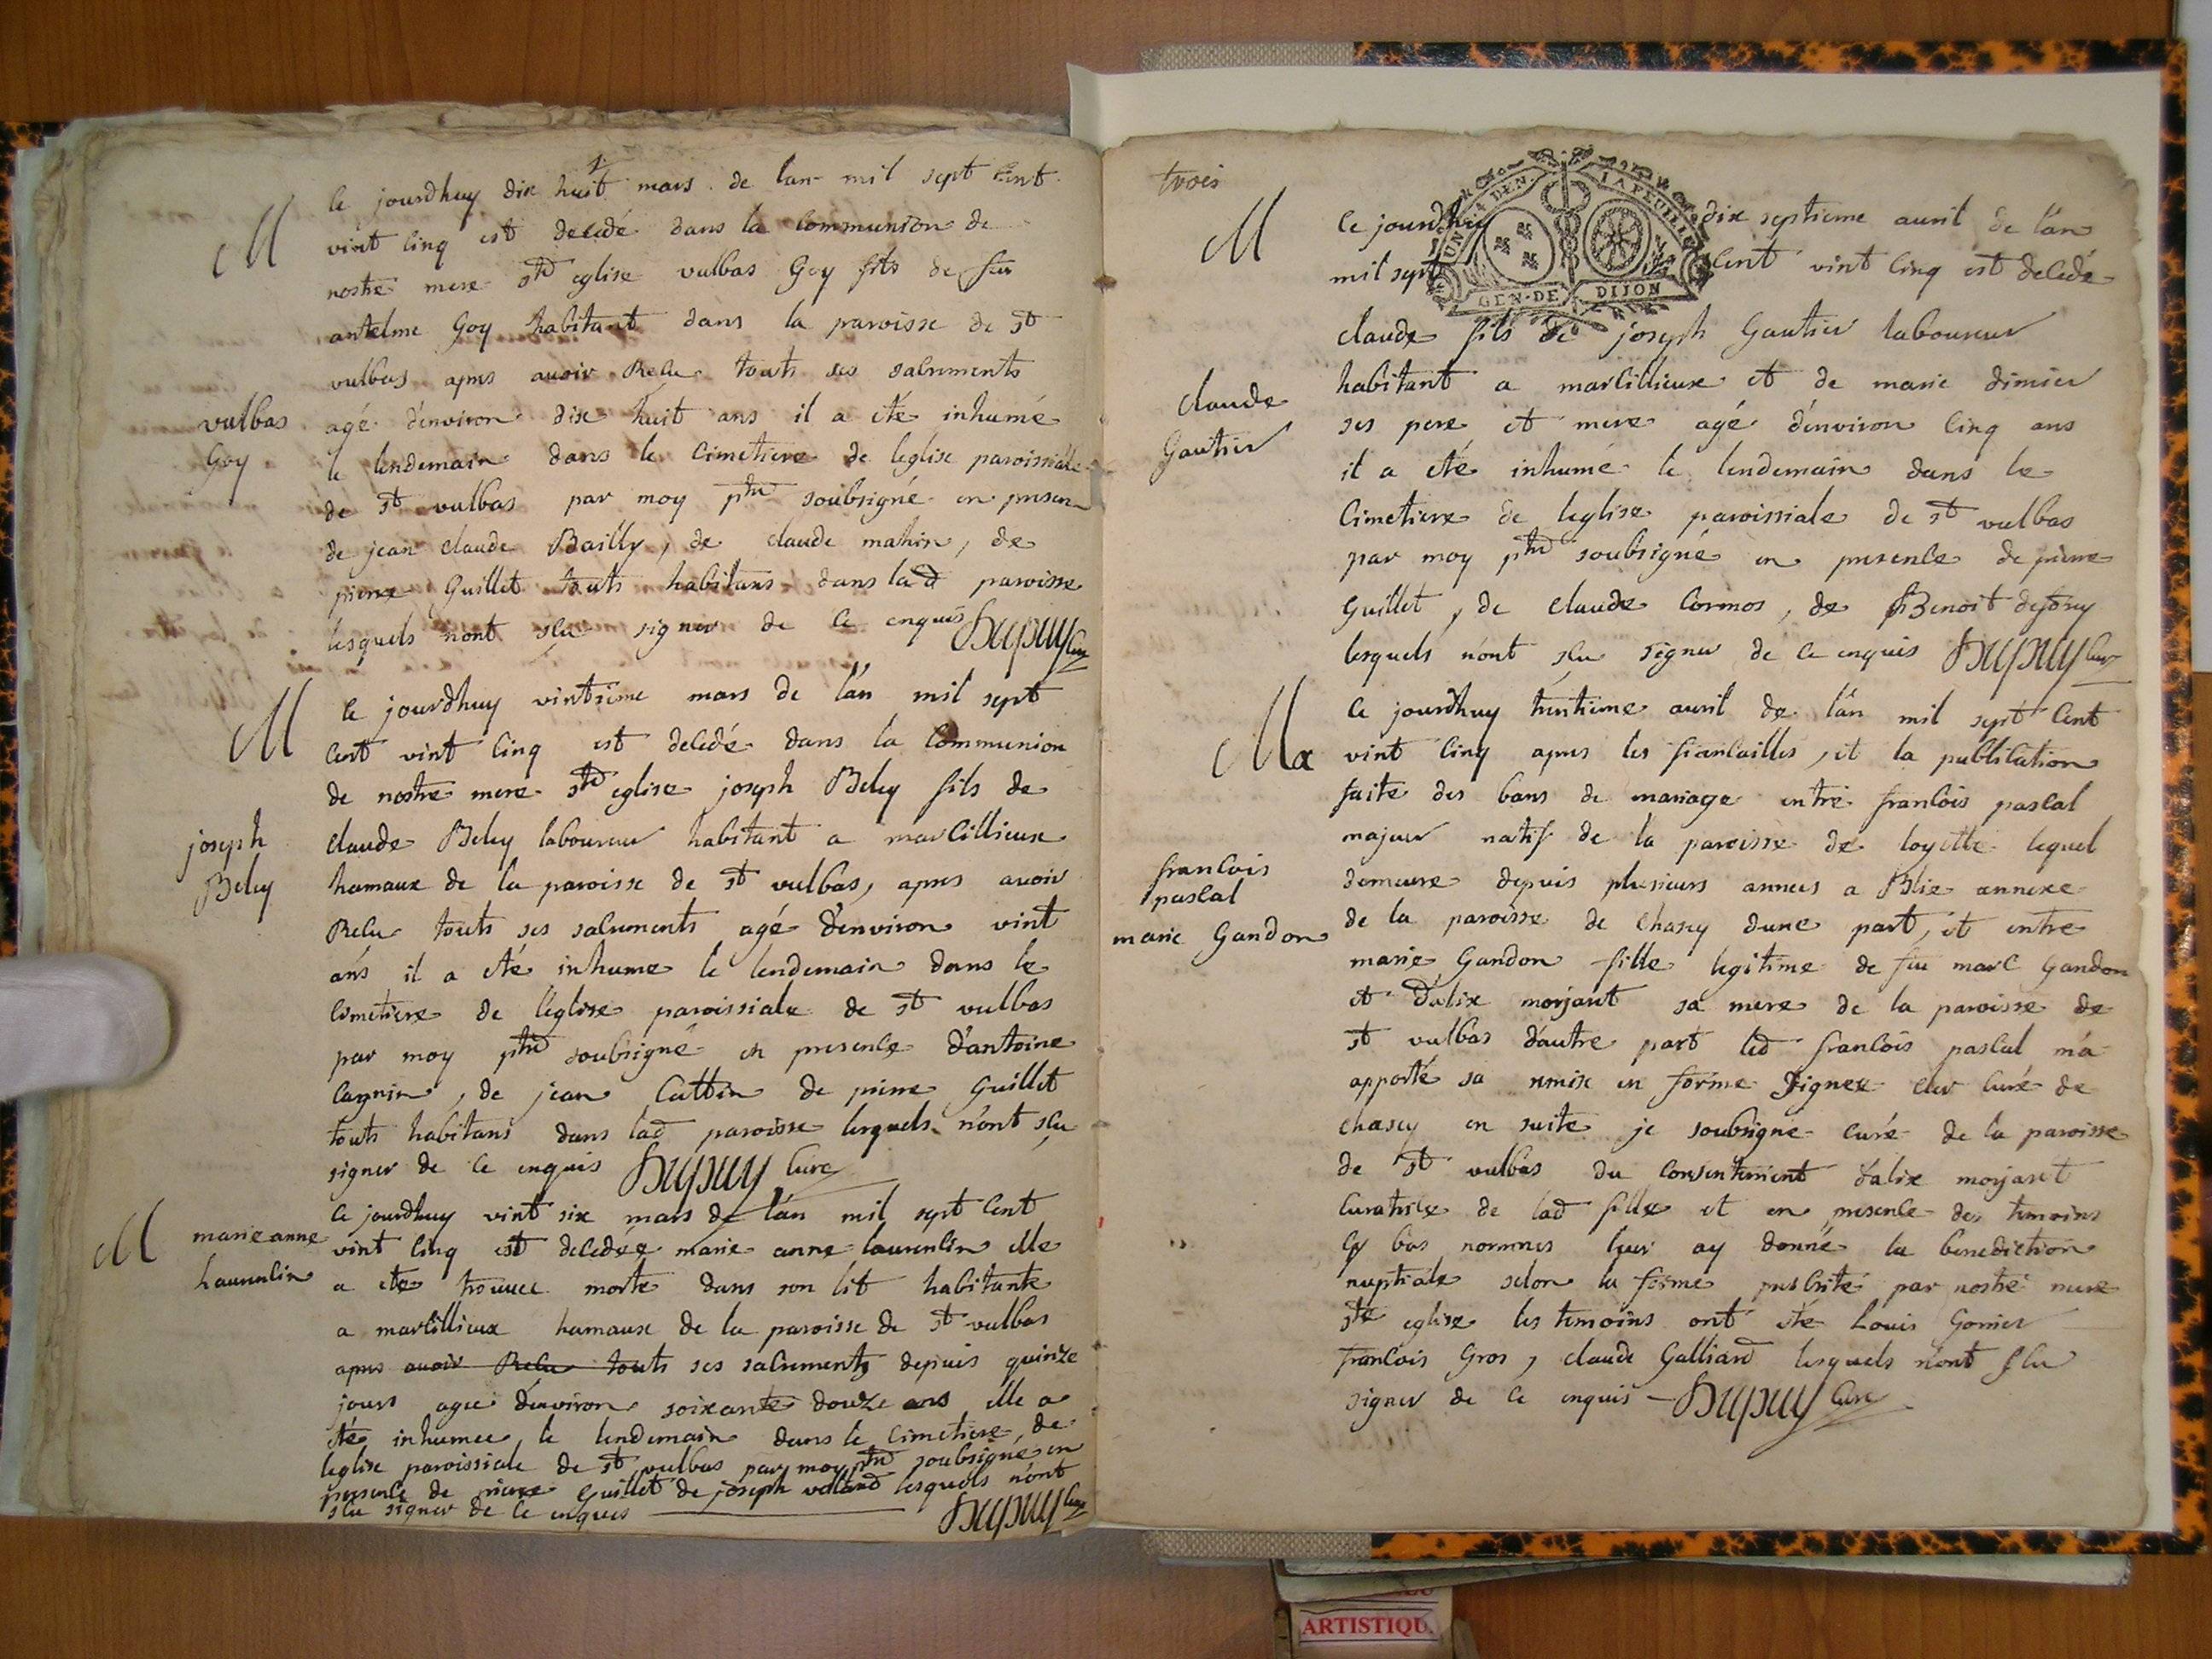 M
le jourdhuy dix huit mars de lan mil sept cent
vint cinq est decedé dans la communion de
nostre mere ste eglise vulbas Goy fils de feu
antelme Goy habitant dans la paroisse de st
vulbas apres avoir recu touts ses sacrements
vulbas
Goy
agé d'environ dix huit ans il a eté inhumé
le lendemain dans le cimetiere de leglise paroissiale
de st vulbas par moy ptre soubsigné en presen
de jean claude Bailly, de claude mahin, de
pierre Guillet touts habitans dans lad paroisse
lesquels nont sçu signer de ce enquis Dupuy cure
M
ce jourdhuy vintieme mars de l'an mil sept
cent vint cinq est decedé dans la communion
de nostre mere ste eglise joseph Beley fils de
joseph
Beley
claude Beley laboureur habitant a marcillieux
hamaux de la paroisse de st vulbas, apres avoir
recu touts ses sacrements agé d'environ vint
ans il a eté inhume le lendemain dans le
cimetiere de l'eglise paroissiale de st vulbas
par moy ptre soubsigné en presence d'antoine
cagnin, de jean Cattin de pierre Guillet
touts habitans dans lad paroisse lesquels n'ont sçu
signer de ce enquis Dupuy cure
M
marie anne
laurencin
ce jourdhuy vint six mars de l'an mil sept cent
vint cinq est decedée marie anne laurencin elle
a ete trouvee morte dans son lit habitante
a marcillieux hamaux de la paroisse de st vulbas
apres avoir recu touts ses sacrements depuis quinze
jours agee d'environ soixante douze ans elle a
eté inhumee le lendemain dans le cimetiere de
leglise paroissiale de st vulbas par moy ptre soubsigné en
presence de pierre Guillet de joseph volland lesquels n'ont
sçu signer de ce enquis Dupuy cure
trois
UN 4 DEN. LA FEUILLE
GEN. DE DIJON
M
Ce jourdhuy dix septieme avril de l'an
mil sept cent vint cinq est decedé
claude fils de joseph Gautier laboureur
claude
Gautier
habitant a marcillieux et de marie dimier
ses pere et mere agé d'environ cinq ans
il a eté inhumé le lendemain dans le
cimetiere de leglise paroissiale de st vulbas
par moy ptre soubsigné en presence de pierre
Guillet, de claude cormos, de Benoit
lesquels n'ont sçu signer de ce enquis Dupuy cure
Ma
Ce jourdhuy trentieme avril de l'an mil sept cent
vint cinq apres les fiancailles, et la publication
faite des bans de mariage entre francois pascal
majeur natif de la paroisse de loyette lequel
francois
pascal
marie Gandon
demeure depuis plusieurs annees a Blie annexe
de la paroisse de chasey dune part, et entre
marie Gandon fille legitime de feu marc Gandon
et d'alix morjaret sa mere de la paroisse de
st vulbas d'autre part led francois pascal m'a
apporté sa remise en forme signee cur curé de
chasey en suite je soubsigne curé de la paroisse
de st vulbas du consentement dalix morjaret
curatrice de lad fille et en presence des temoins
cy bas nommes leur ay donné la benediction
nuptiale selon la forme prescrite par nostre mere
ste eglise les temoins ont eté Louis Gonier
francois Gros, claude Galliard lesquels n'ont sçu
signer de ce enquis Dupuy cure
ARTISTIQU